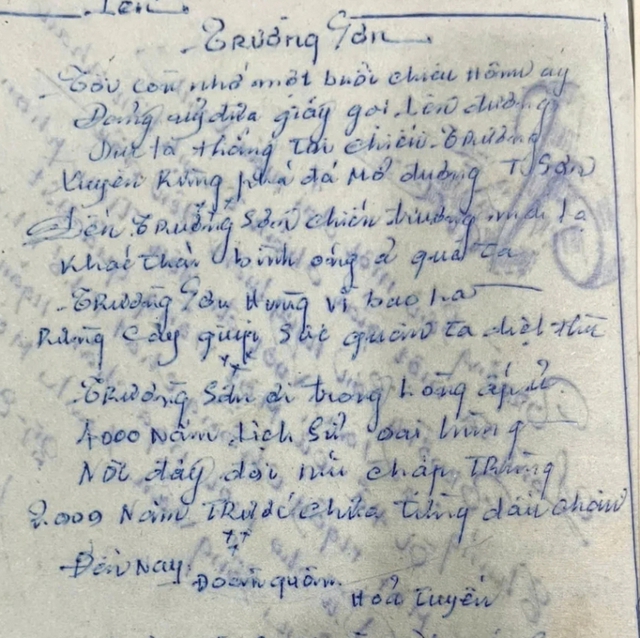 Trường Sơn
Tôi còn nhớ một buổi chiều hôm ấy
Đảng ủy đưa giấy gọi lên đường
Đưa ta thẳng tới chiến trường
Xuyên rừng phá đá mở đường T. Sơn
Đến Trường Sơn chiến trường mới lạ
Khác thái bình ở quê ta
Trường Sơn hùng vĩ bao la
Rừng cây quện sức quân ta diệt thù
Trường Sơn ơi trong lòng ấp ủ
4000 năm lịch sử oai hùng
Nơi đây đồi núi chập trùng
2.000 năm trước chưa từng dấu chân
Đến nay
Đoàn quân
Hỏa tuyến